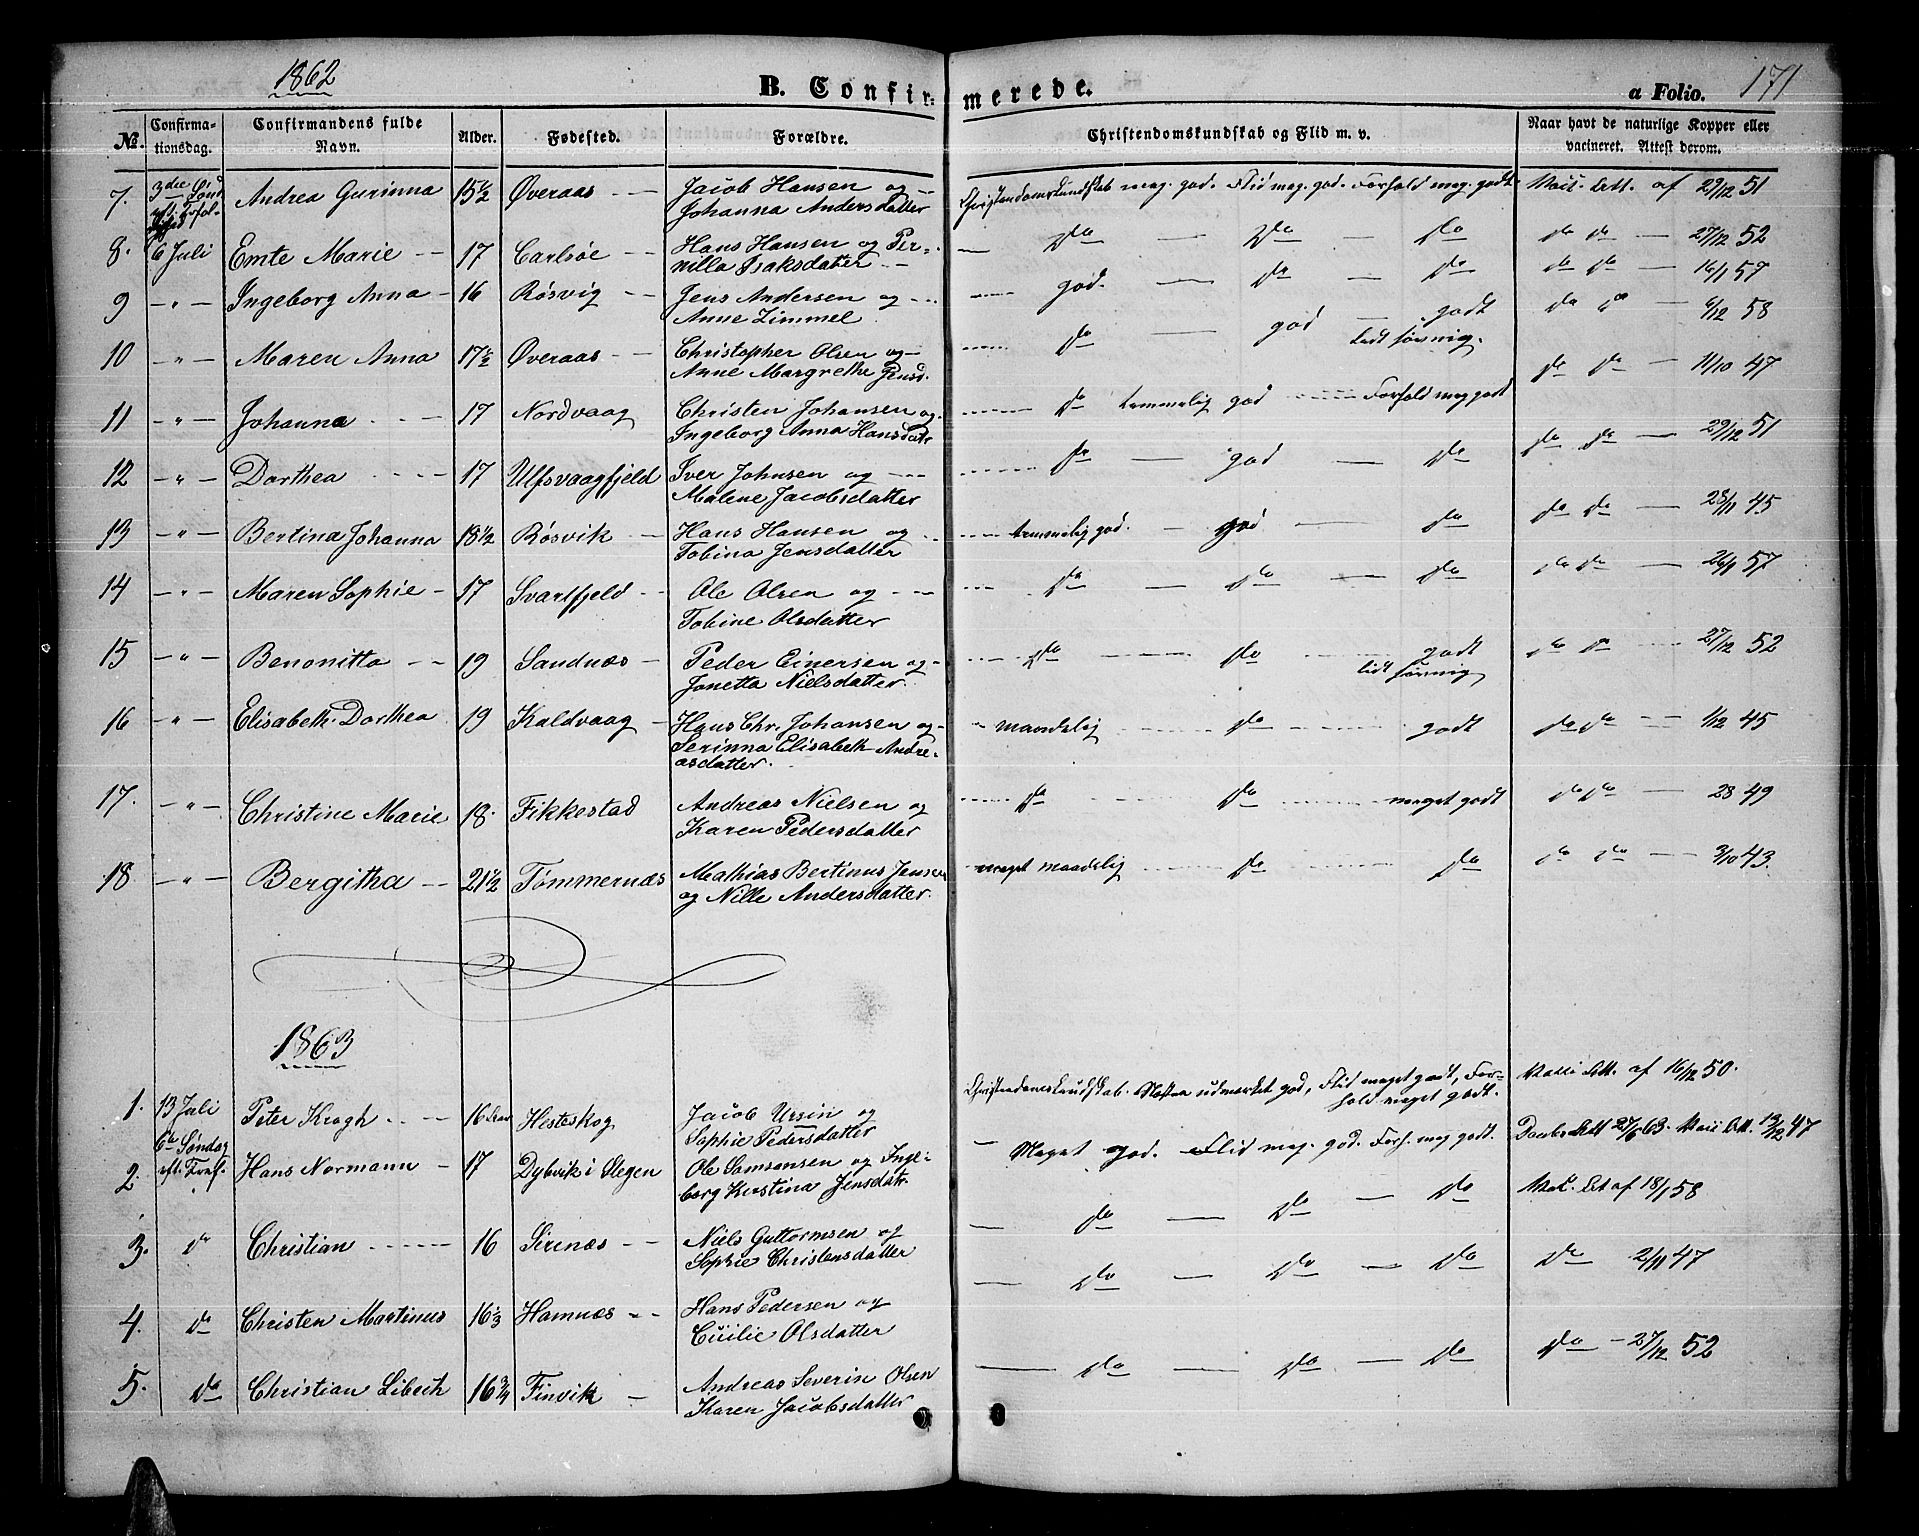 1862
B. Confirmerede.
a Folio. 171
No. Confirmationsdag. Confirmandens fulde Navn. Alder. Fødested. Forældre. Christendomskundskab og Flid m. v. Naar havt de naturlige Kopper eller vacineret. Attest derom.
7. 3die Sønd Andrea Gurinna 15½ Øveraas Jacob Hansen og Johanna Andersdatter Christendomskundskab meg. god. Flid meg. god. Forhold meg. godt. Att. af 29/12 51
8. 6 Juli Emte Marie 17 Carlsöe Hans Hansen og Pernilla Isaksdatter Do Do Do do do 27/12 52
9 " Ingeborg Anna 16 Røsvig Jens Andersen og Anne Zimmel god. do do do do 16/1 57
10 " Maren Anna 17½ Øveraas Christopher Olsen og Anne Margrethe Jensd. do god godt do do 6/12 58
11 " Johanna 17 Nordvaag Christen Johansen og Ingeborg Anna Hansdatr do temmelig god Forhold meg godt do do 11/10 47
12 " Dorthea 17 Ulfsvaagfjeld Iver Johnsen og Malene Jacobsdatter do god do do do 29/12 51
13 " Bertina Johanna 18½ Røsvik Hans Hansen og Tobina Jensdatter temmelig god. god do do do 28/11 45
14 " Maren Sophie 17 Svartfjeld Ole Olsen og Tobine Olsdatter do do do do do 26/1 57
15 " Benonitta 19 Sandnæs Peder Einersen og Jonetta Nielsdatter. do do godt do do 27/12 52
16 " Elisabeth Dorthea 19 Kaldvaag Hans Chr. Johansen og Serinna Elisabeth Andreasdatter. maadelig do godt do do 1/12 45
17. " Christine Marie 18. Fikkestad Andreas Nielsen og Karen Pedersdatter do do meget godt do do 28 49
18 " Bergitha 21½ Tømmernæs Mathias Bertinus Jensen og Nille Andersdatter. meget maadelig do do do do 3/10 43.
1863
1. 13 Juli Peter Kragh 16 Hesteskog Jacob Ursin og Sophie Pedersdatter Christendomskundskab. Næsten udmærket god, Flid meget godt, Forhold meget godt. Att. af 16/12 50.
2. 6te Søndag eft. Tref. Hans Normann 17 Dybvik i Stegen Ole Samsonsen og Ingeborg Kerstina Jensdatr. Meget god. Flid meg. god. Forh. meg godt. Daabs Att 27/6 63. Att. 13/12 47
3. do Christian 16 Sirenæs Niels Guttormsen og Sophie Christensdatter do do do af 18/1 58
4. do Christen Martinus 16⅓ Hamnæs Hans Pedersen og Cicilie Olsdatter do do do do 2/11 47
5. do Christian Libech 16¾ Finvik Andreas Severin Olsen Karen Jacobsdatter do do do do 27/12 52